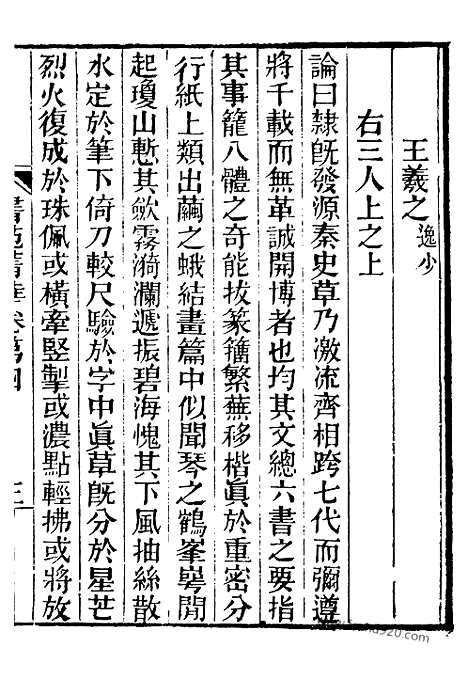 王羲之逸少
右三人上之上
論曰隸旣發源秦史草乃激流齊相跨七代而彌遵
將千載而無革誠開博者也均其文總六書之要指
其事籠八體之奇能拔篆籀繁蕪移楷眞於重密分
行紙上類出繭之蛾結畫篇中似聞琴之鶴峯崿開
起瓊山慙其歛霧漪瀾遞振碧海愧其下風抽絲散
水定於筆下倚刀較尺驗於字中眞草旣分於星芒
烈火復成於珠佩或橫牽竪掣或濃點輕拂或將放